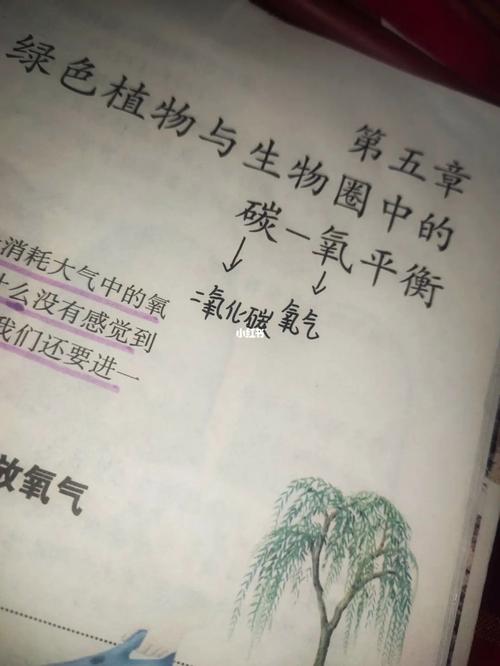 第五章
绿色植物与生物圈中的
碳—氧平衡
二氧化碳 氧气
小红书
消耗大气中的氧
么没有感觉到
我们还要进一
放氧气